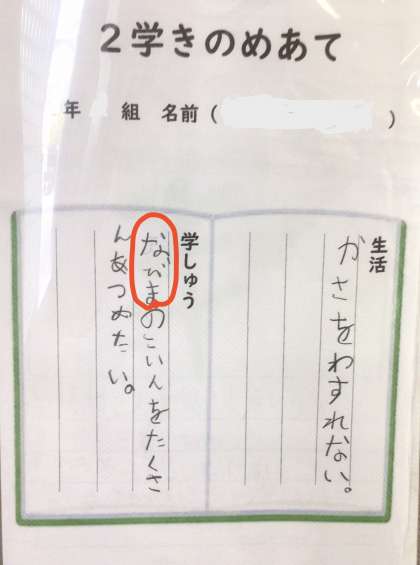 ２学きのめあて
年 組 名前( )
生活
かさをわすれない。
学しゅう
なびまのこいんをたくさ
んあつめたい。